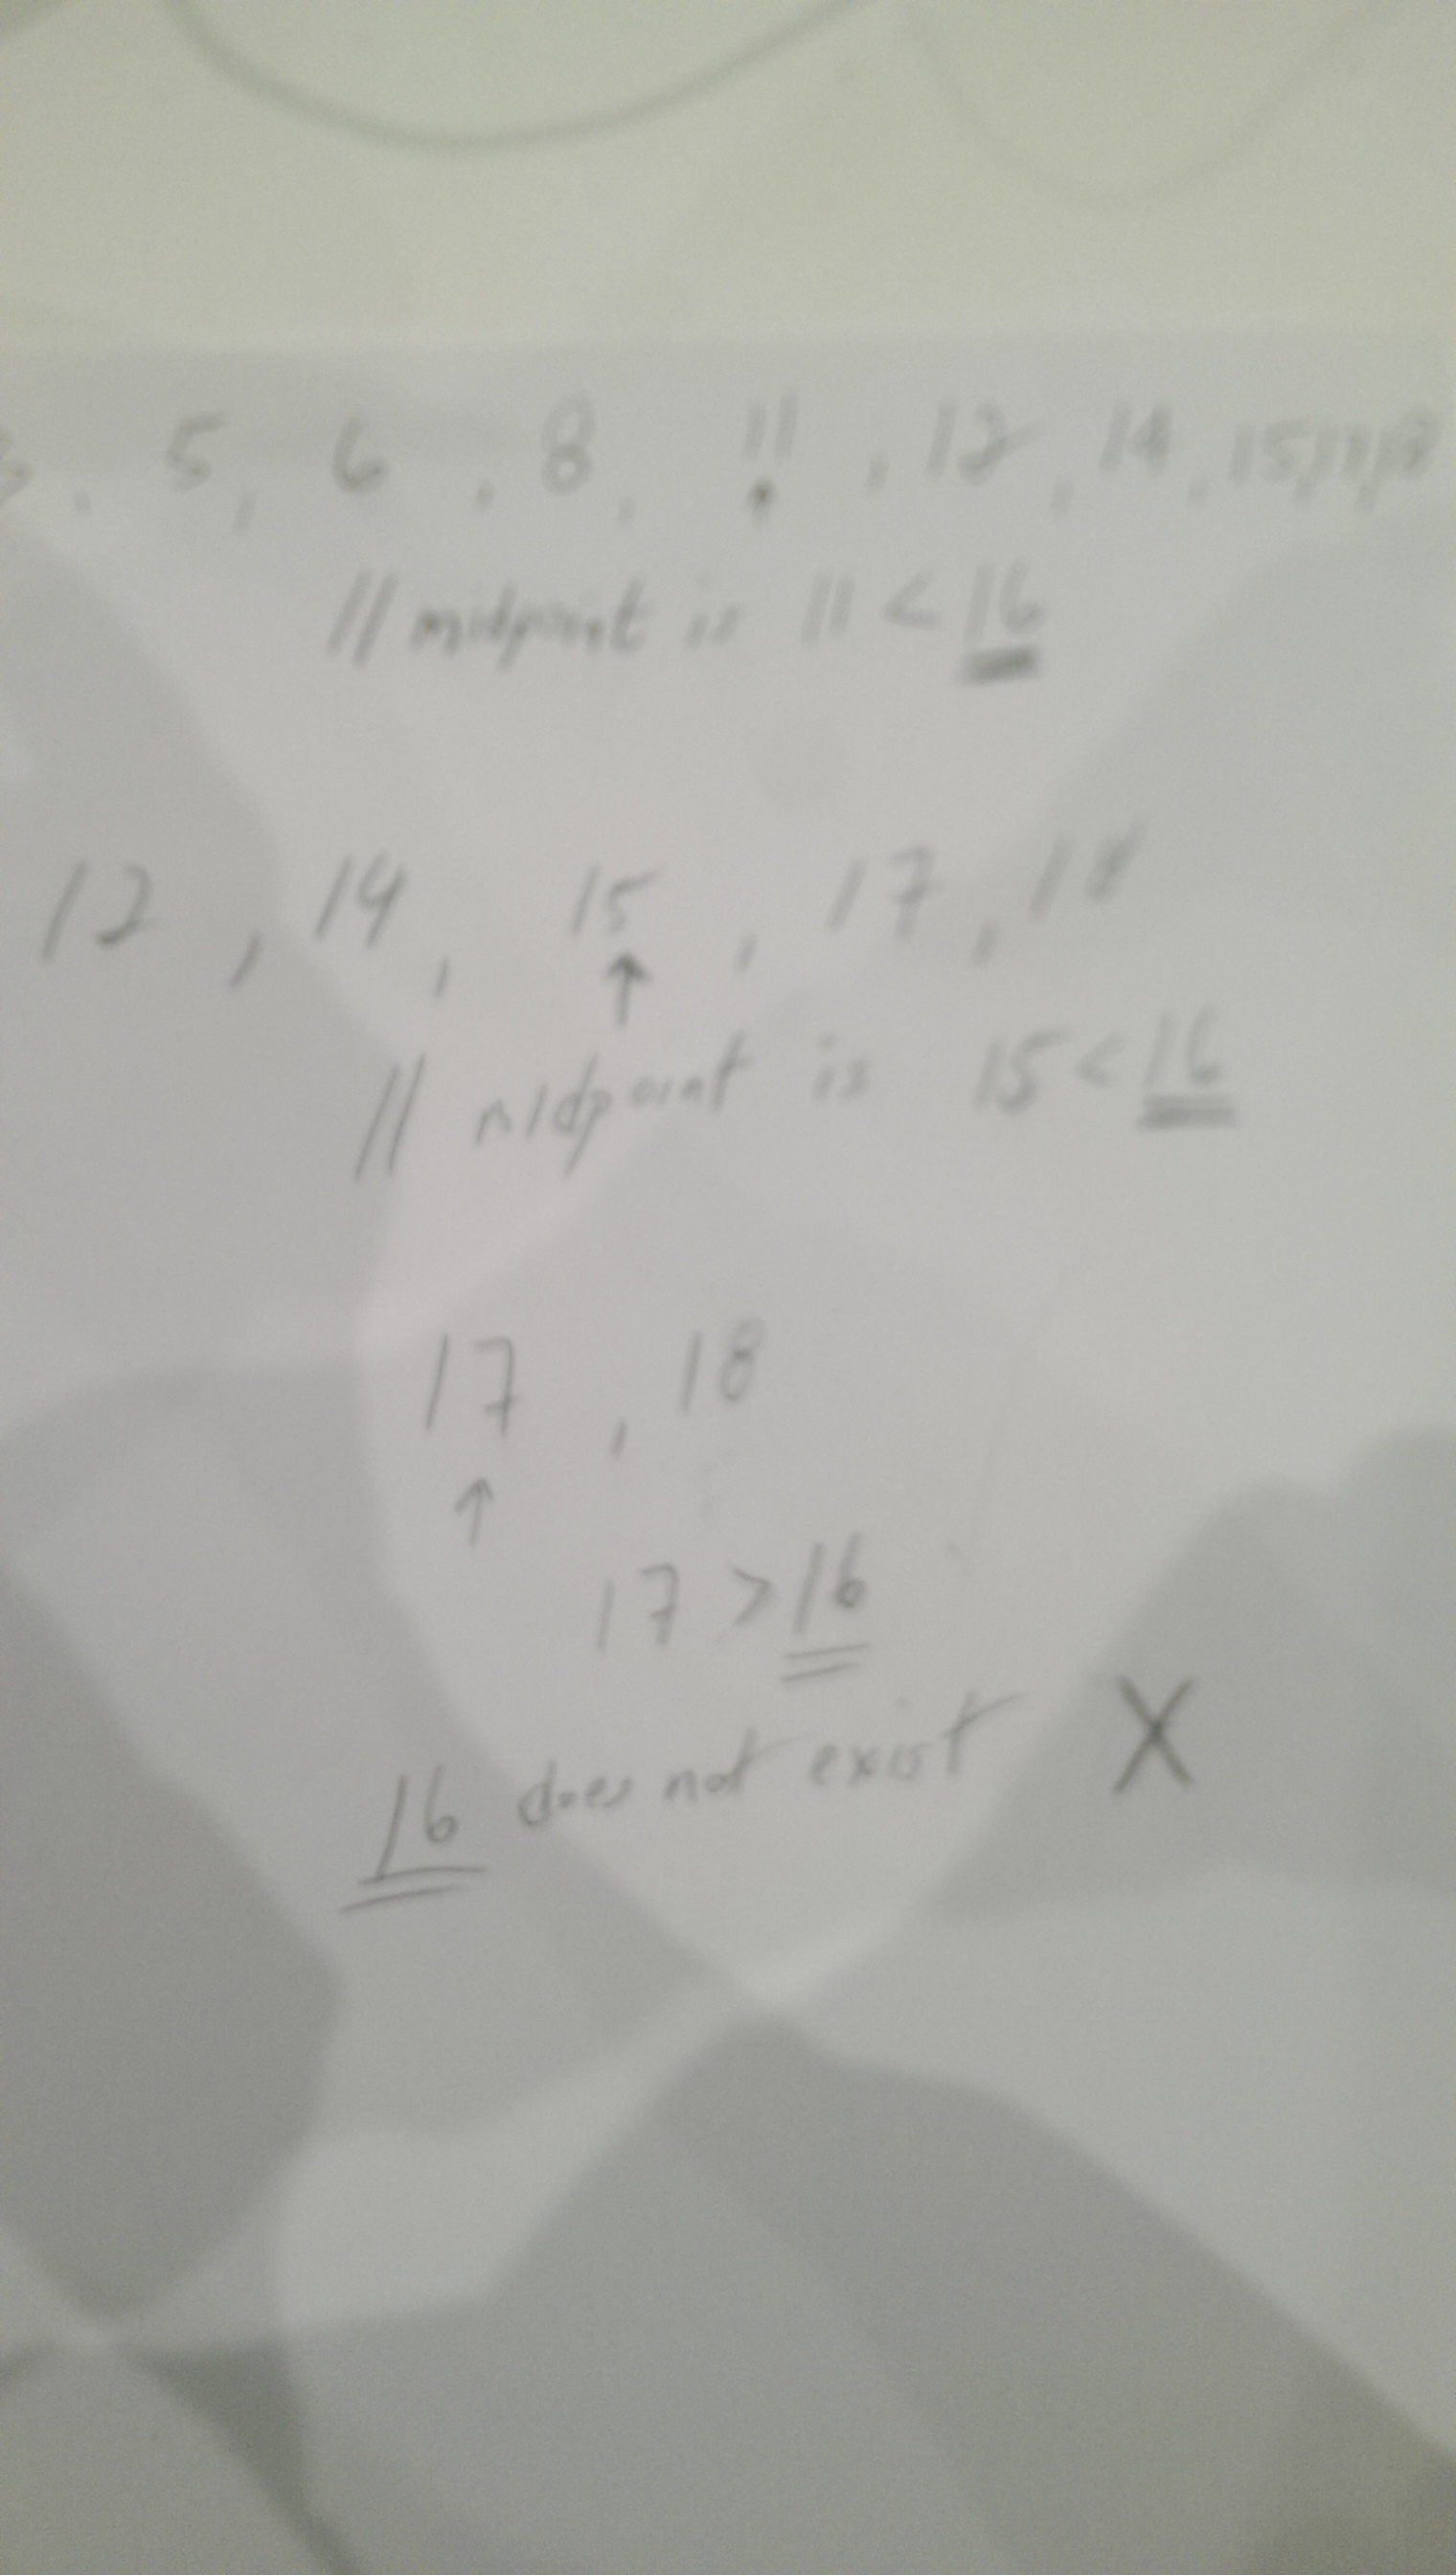 , 5, 6, 8, 11, 12, 14, 15, 17, 18
// midpoint is 11 < 16
12, 14, 15, 17, 18
↑
// midpoint is 15 < 16
17, 18
↑
17 > 16
16 does not exist X